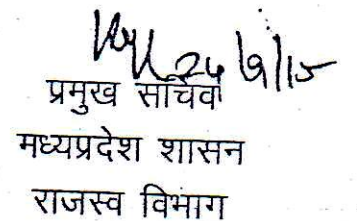 24/9/15
प्रमुख सचिव
मध्यप्रदेश शासन
राजस्व विभाग